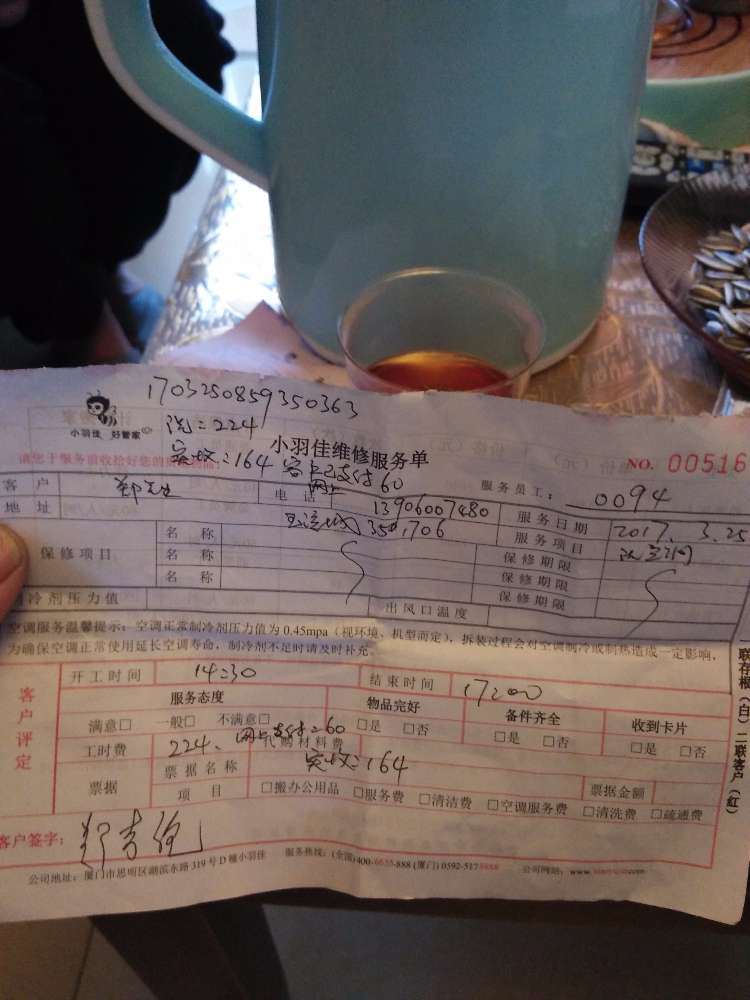 1703250859350363
洗:224
小羽佳 好管家
小羽佳维修服务单
实收:164 客户已支付60
网上
请您于服务前收拾好您的
NO. 00516
客 户 郑先生 电 话 13906007480 服务员工: 0094
地 址 350,1706 服务日期 2017.3.25
保修项目 名 称 保修期限 服务项目
名 称 保修期限
名 称 保修期限
制冷剂压力值 出风口温度
空调服务温馨提示:空调正常制冷剂压力值为 0.45mpa(视环境、机型而定),拆装过程会对空调制冷或制热造成一定影响,
为确保空调正常使用延长空调寿命,制冷剂不足时请及时补充。
客户评定
开工时间 14:30 结束时间 17:00
服务态度 物品完好 备件齐全 收到卡片
满意□ 一般□ 不满意□ □是 □否 □是 □否 □是 □否
工时费 224、网上支付:60 代购材料费
实收:164
票据 票据名称 票据金额
项 目 □搬办公用品 □服务费 □清洁费 □空调服务费 □清洗费 □疏通费
客户签字:
公司地址:厦门市思明区湖滨东路 319 号 D 幢小羽佳 服务热线:(全国)400-6635-888 (厦门) 0592-517 公司网站:
联存根(白)二联客户(红)